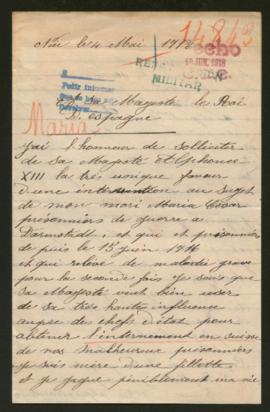 1484
Nice le 4 Mai 1918
hecho
10 JUN. 1918
MILITAR
Pedir informes
Sa Majesté le Roi
d'Espagne
Maria
J'ai l'honneur de solliciter
de sa Majesté Alphonse
XIII la très unique faveur
d'une intervention au sujet
de mon mari Maria César
prisonniers de guerre a
Darmstadt, et qui et prisonnier
depuis le 15 juin 1916
et qui relève de maladie grave
pour la seconde fois je sais que
sa Majesté veut bien user
de sa très haute influence
auprès des chefs d'état pour
obtenir l'internement en suisse
de nos malheureux prisonniers
je suis mère d'une fillette
et je gagne péniblement ma vie